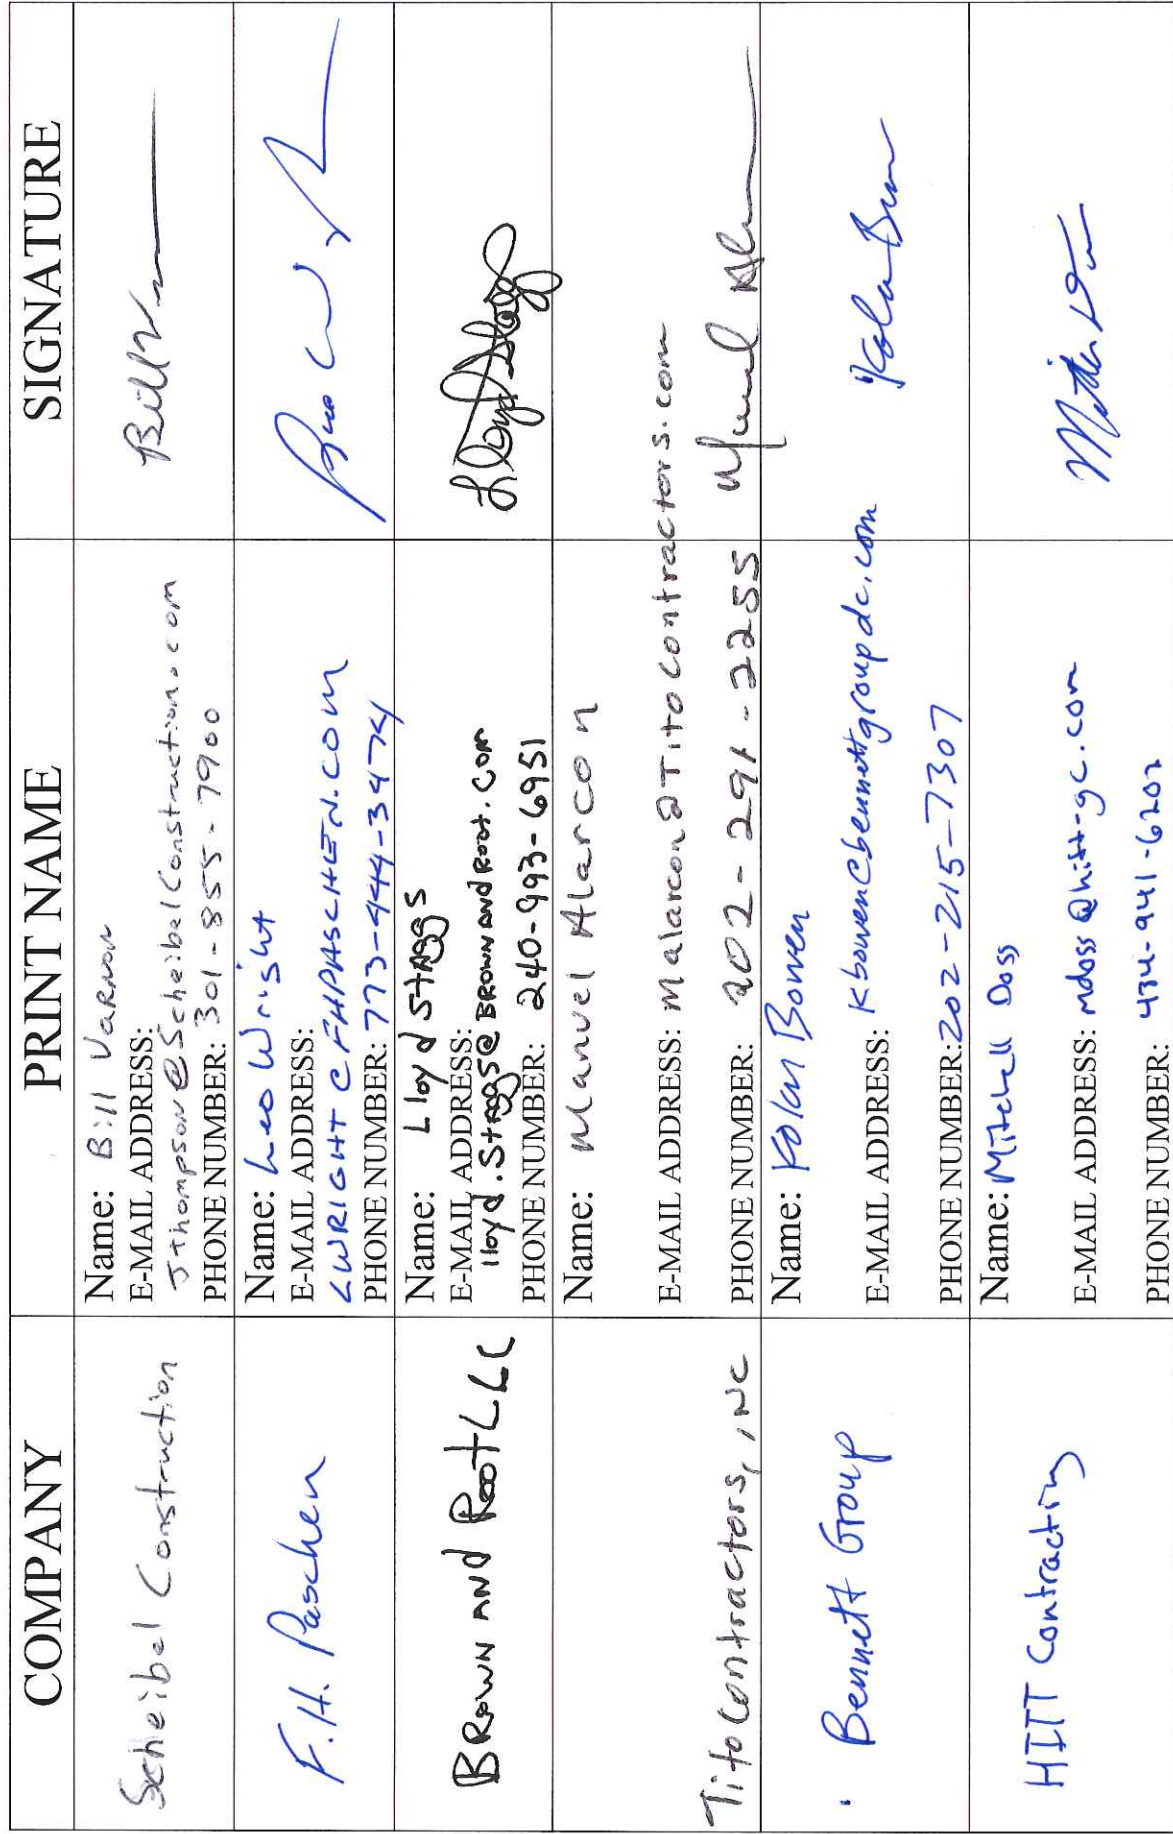 COMPANY PRINT NAME SIGNATURE
Scheibel Construction
Name: Bill Varnon
E-MAIL ADDRESS:
Jthompson@ScheibelConstruction.com
PHONE NUMBER: 301-855-7900
Bill V
F.H. Paschen
Name: Leo Wright
E-MAIL ADDRESS:
LWRIGHT@FHPASCHEN.COM
PHONE NUMBER: 773-444-3474
BROWN AND Root LLC
Name: Lloyd STAGGS
E-MAIL ADDRESS:
lloyd.Staggs@BROWNANDROOT.Com
PHONE NUMBER: 240-993-6951
Lloyd Staggs
Tito Contractors, INC
Name: Manuel Alarcon
E-MAIL ADDRESS: malarcon@Titocontractors.com
PHONE NUMBER: 202-291-2255
Bennett Group
Name: Kolan Bowen
E-MAIL ADDRESS: Kbowen@bennettgroupdc.com
PHONE NUMBER: 202-215-7307
HITT Contracting
Name: Mitchell Doss
E-MAIL ADDRESS: mdoss@hitt-gc.com
PHONE NUMBER: 434-941-6202